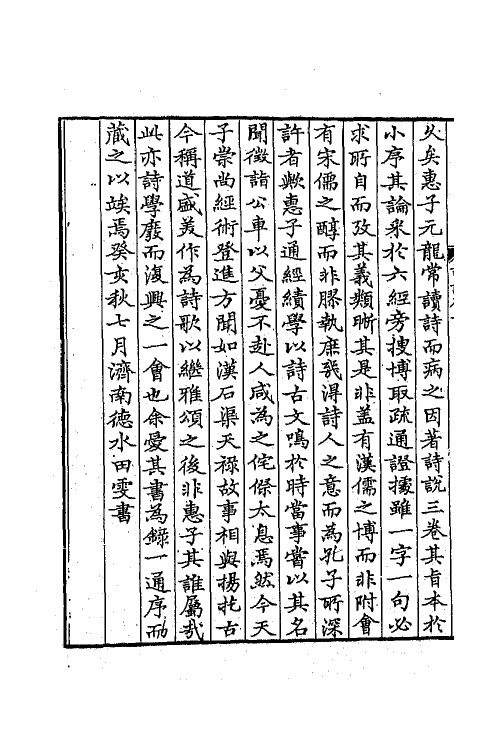 久矣惠子元龍常讀詩而病之因著詩說三卷其旨本於
小序其論采於六經旁搜博取疏通證據雖一字一句必
求所自而攷其義類晰其是非蓋有漢儒之博而非附會
有宋儒之醇而非膠執庶幾淂詩人之意而為孔子所深
許者歟惠子通經績學以詩古文鳴於時當事嘗以其名
聞徵詣公車以父憂不赴人咸為之侘傺太息焉然今天
子崇尚經術登進方聞如漢石渠天祿故事相與揚扢古
今稱道盛美作為詩歌以繼雅頌之後非惠子其誰屬哉
此亦詩學廢而復興之一會也余愛其書為錄一通序而
藏之以竢焉癸亥秋七月濟南德水田雯書